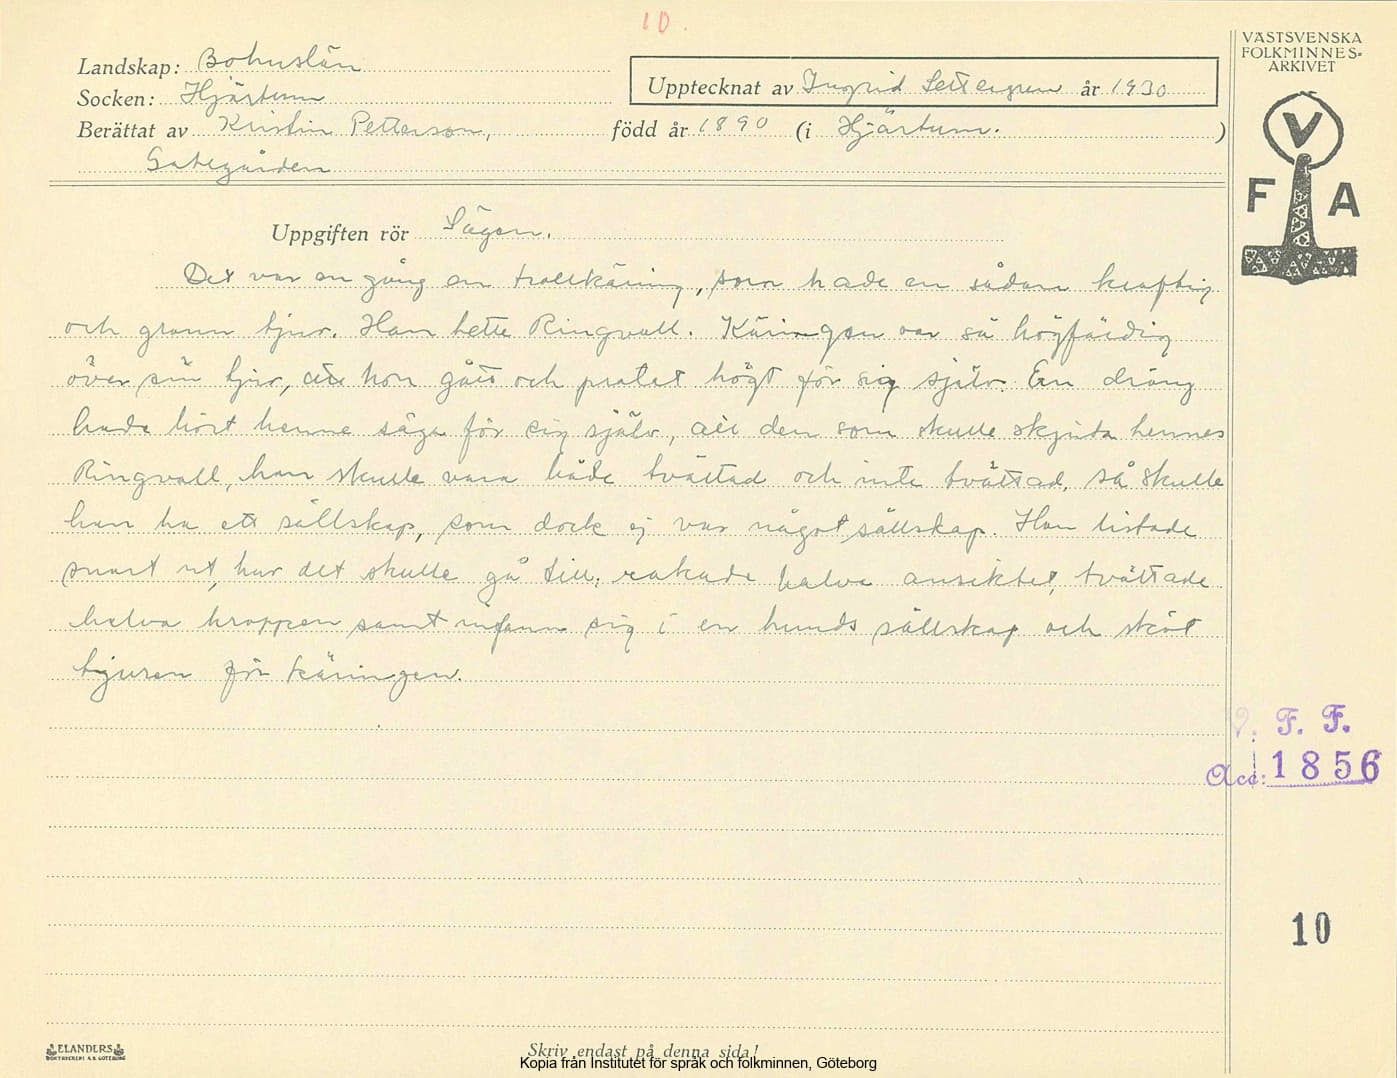 10.
VÄSTSVENSKA
FOLKMINNES=
ARKIVET
V
F A
Landskap: Bohuslän
Socken: Hjärtum
Upptecknat av Ingrid Settergren år 1930
Berättat av Kristin Petterson, född år 1890 (i Hjärtum. )
Gategården
Uppgiften rör Sägen.
Det var en gång en trollkäring, som hade en sådan kraftig
och grann tjur. Han hette Ringvall. Käringen var så högfärdig
över sin tjur, att hon gått och pratat högt för sig själv. En dräng
hade hört henne säga för sig själv, att den som skulle skjuta hennes
Ringvall, han skulle vara både tvättad och inte tvättad, så skulle
han ha ett sällskap, som dock ej var något sällskap. Han listade
snart ut, hur det skulle gå till, rakade halva ansiktet, tvättade
halva kroppen samt infann sig i en hunds sällskap och sköt
tjuren för käringen.
V. F. F.
Acc: 1856
10
ELANDERS
BOKTRYCKERI A.B. GÖTEBORG
Skriv endast på denna sida!
Kopia från Institutet för språk och folkminnen, Göteborg